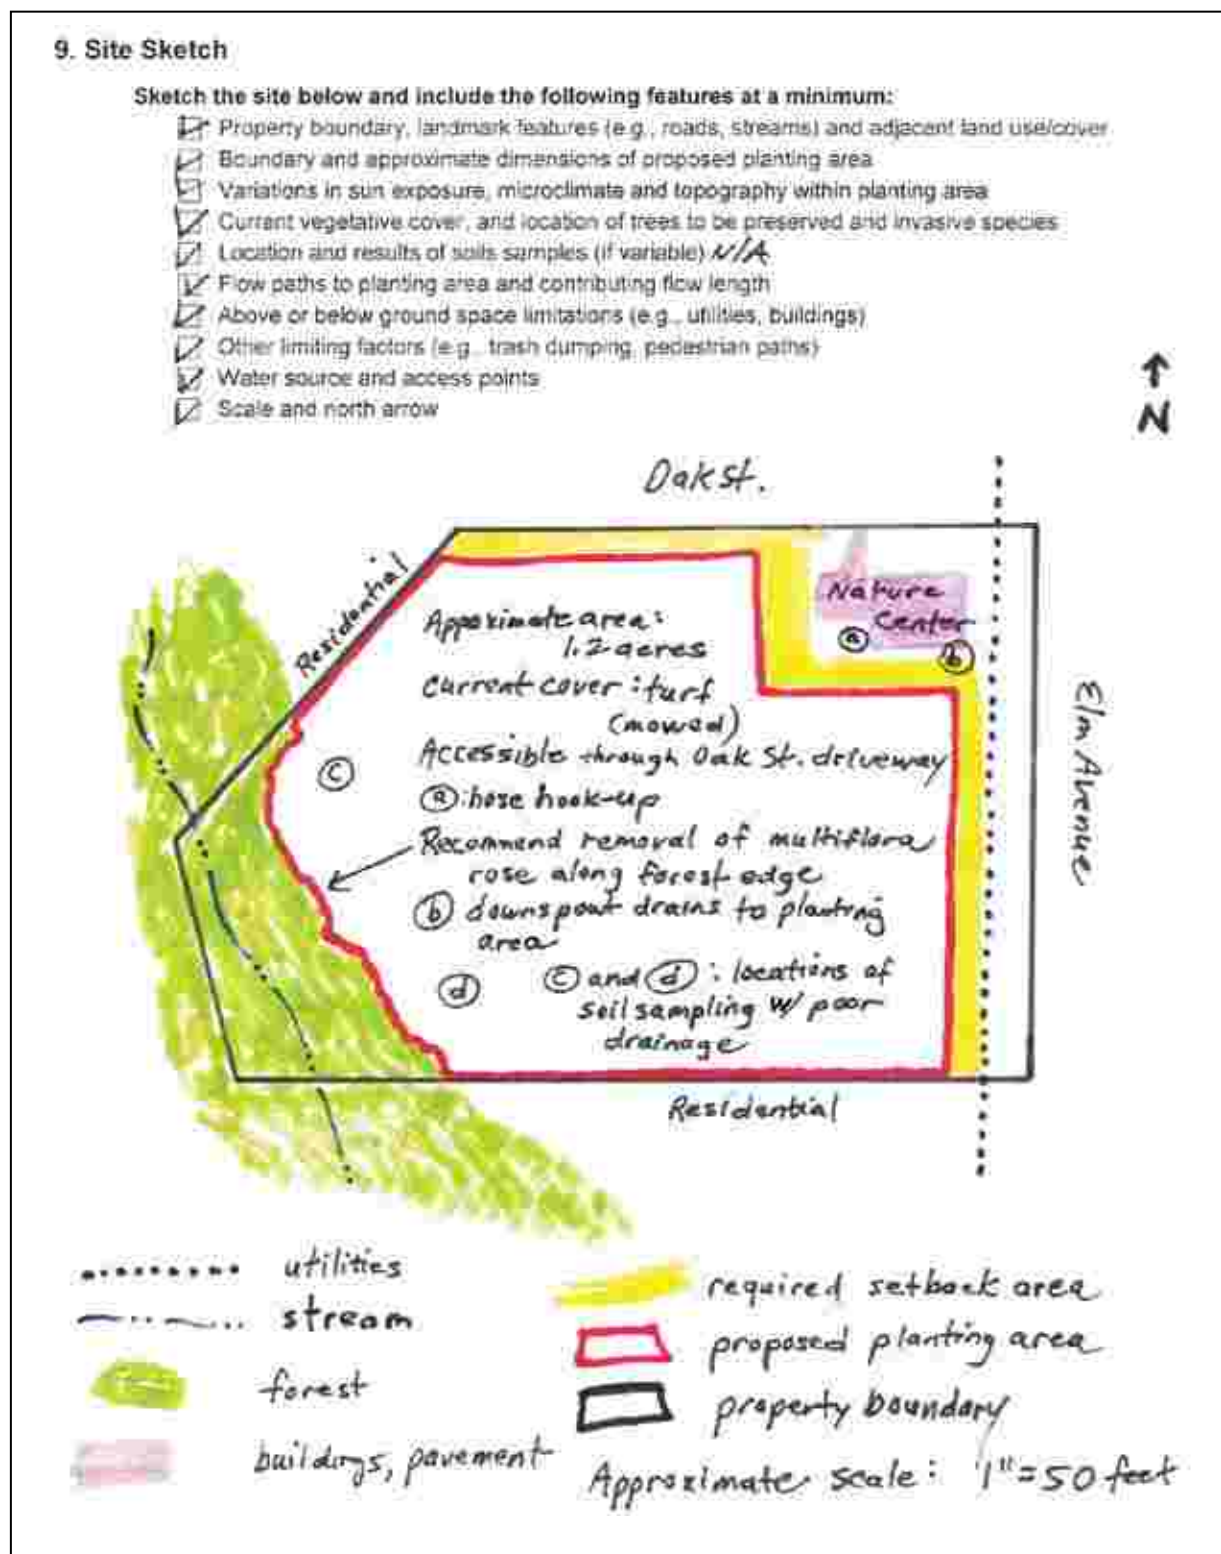 9. Site Sketch
Sketch the site below and include the following features at a minimum:
Property boundary, landmark features (e.g., roads, streams) and adjacent land use/cover
Boundary and approximate dimensions of proposed planting area
Variations in sun exposure, microclimate and topography within planting area
Current vegetative cover, and location of trees to be preserved and invasive species
Location and results of soils samples (if variable) N/A
Flow paths to planting area and contributing flow length
Above or below ground space limitations (e.g., utilities, buildings)
Other limiting factors (e.g., trash dumping, pedestrian paths)
Water source and access points
Scale and north arrow
N
Oak St.
Residential
Nature
Center
a
b
Elm Avenue
Appoximate area:
1.2 acres
current cover: turf
(mowed)
Accessible through Oak St. driveway
c
a: hose hook-up
Recommend removal of multiflora
rose along forest edge
b downspout drains to planting
area
d
c and d: locations of
soil sampling w/ poor
drainage
Residential
utilities
stream
forest
buildings, pavement
required setback area
proposed planting area
property boundary
Approximate scale: 1"=50 feet